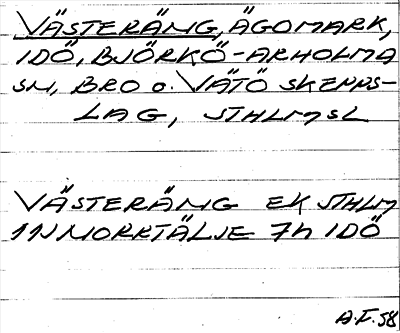 VÄSTERÄNG, ÄGOMARK,
IDÖ, BJÖRKÖ-ARHOLMA
SN, BRO o. VÄTÖ SKEPPS-
LAG, STHLMSL
VÄSTERÄNG EK STHLM
11N NORRTÄLJE 7h IDÖ
A.F. 58